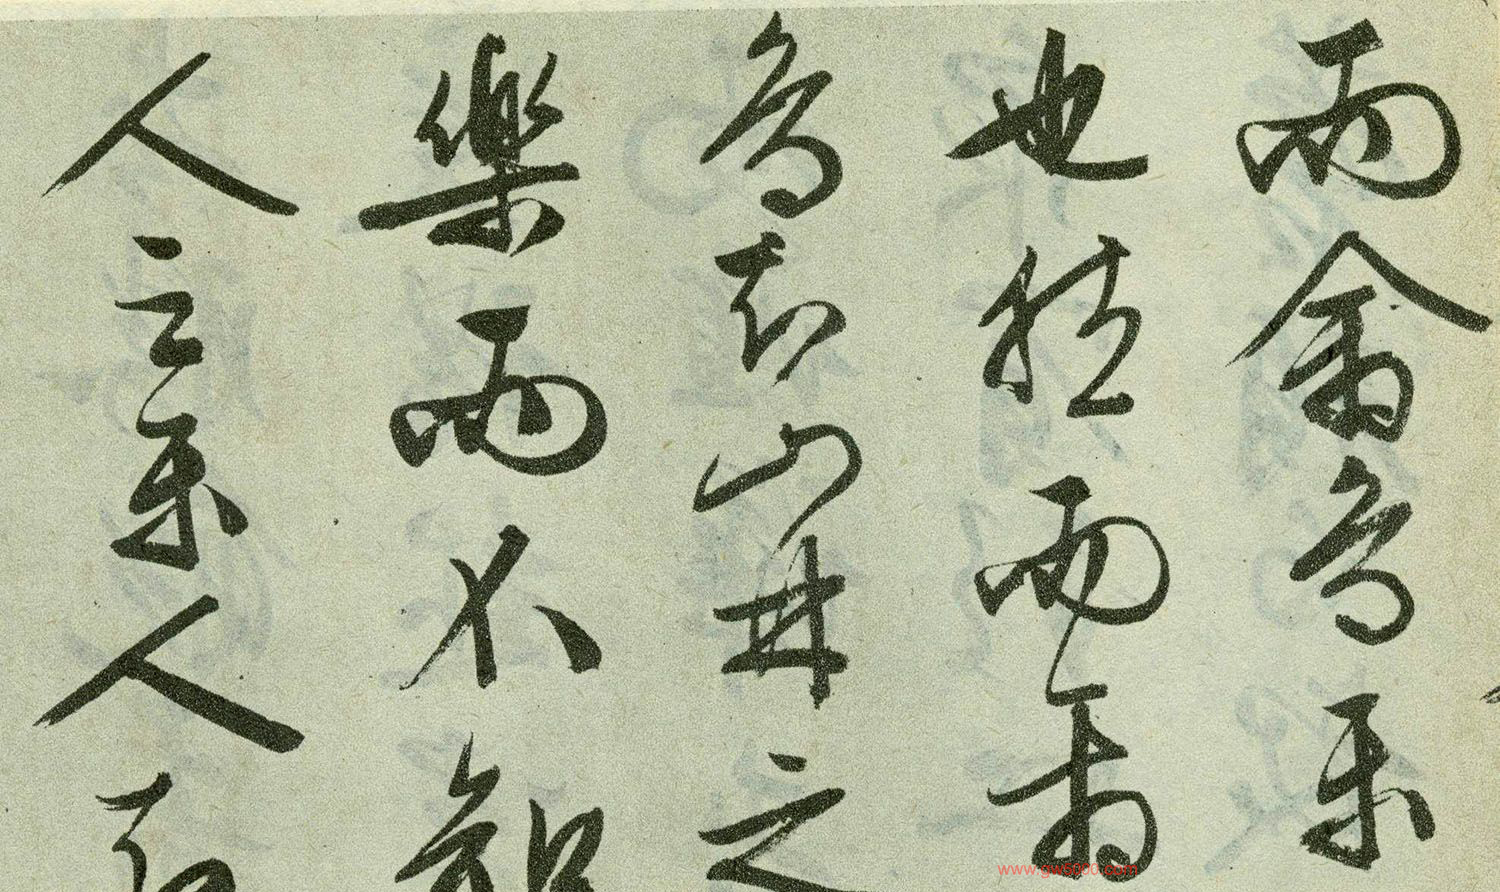 而禽鳥樂
也然而禽
鳥知山林之
樂而不知
人之樂人知
www.gw5000.com